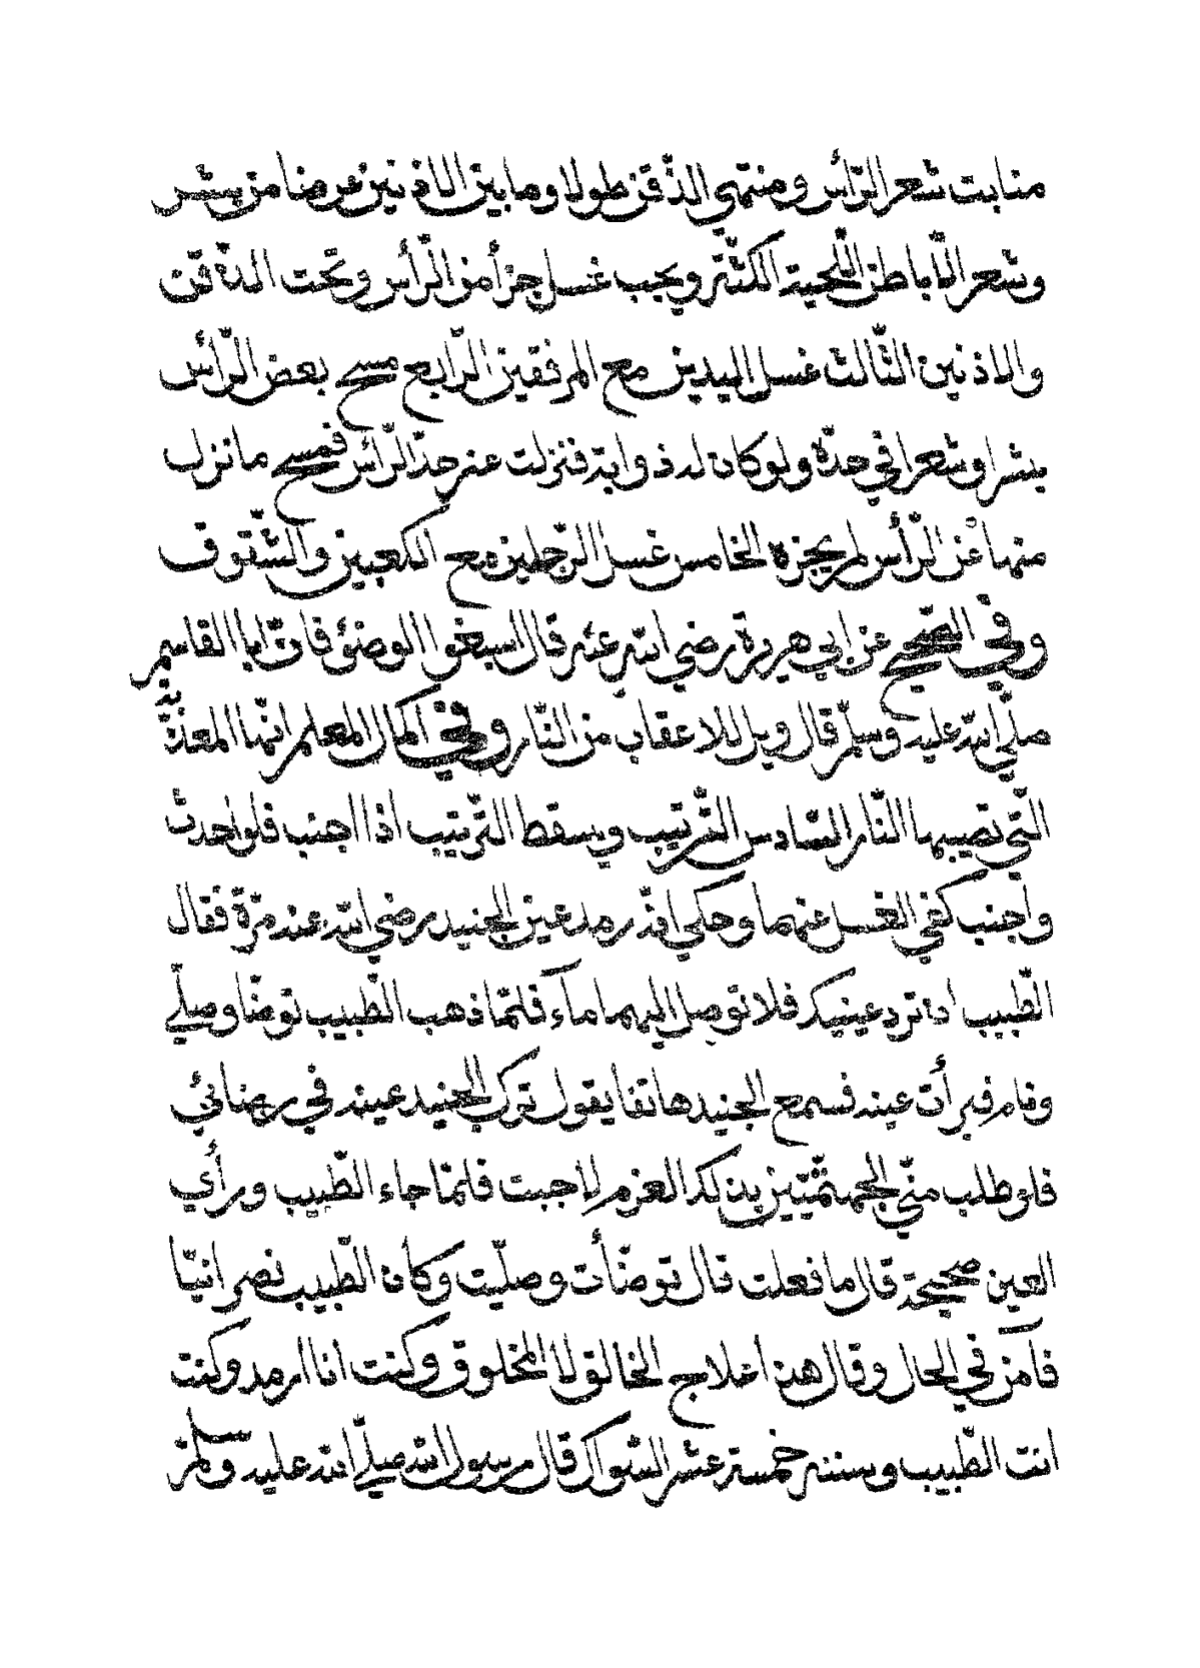 منابت شعر الرّأس ومنتهي الذّقن طولا وما بين الاذنين عرضا من بشر
وشعر الّا باطن اللّحية الكثّة ويجب غسل جزأ من الرّأس وتحت الذقن
والاذنين الثّالث غسل اليدين مع المرفقين الرّابع مسح بعض الرّأس
بشرا وشعرا في حدّه ولو كان له ذوابة فنزلت عن حدّ الرّأس فمسح ما نزل
منها عن الرّأس لم يجزه الخامس غسل الرّجلين مع الكعبين والشّقوق
وفي الصّحيح عن ابي هريرة رضي الله عنه قال اسبغوا الوضؤ فانّ ابا القاسم
صلّي الله عليه وسلّم قال ويل للاعقاب من النّار وفي اكمال المعلم انّما المعذّبة
الّتي تصيبها النّار السّادس التّرتيب ويسقط التّرتيب اذا اجنب فلو احدث
واجنب كفي الغسل عنهما وحكي انّه رمد عين الجنيد رضي الله عنه مرّة فقال
الطّبيب ان ترد عينيك فلا توصل اليهما مآء فلمّا ذهب الطّبيب توضّا وصلّي
ونام فبرأت عينه فسمع الجنيد هاتفا يقول ترك الجنيد عينه في رضائي
فلو طلب منّي الجهنّميّين بذلك العزم لاجبت فلمّا جاء الطّبيب ورأي
العين صحيحة قال ما فعلت قال توضّأت وصلّيت وكان الطّبيب نصرانيّا
فآمن في الحال وقال هذا علاج الخالق لا المخلوق وكنت انا ارمد وكنت
انت الطّبيب وسننه خمسة عشر السّواك قال رسول الله صلّي الله عليه وسلم